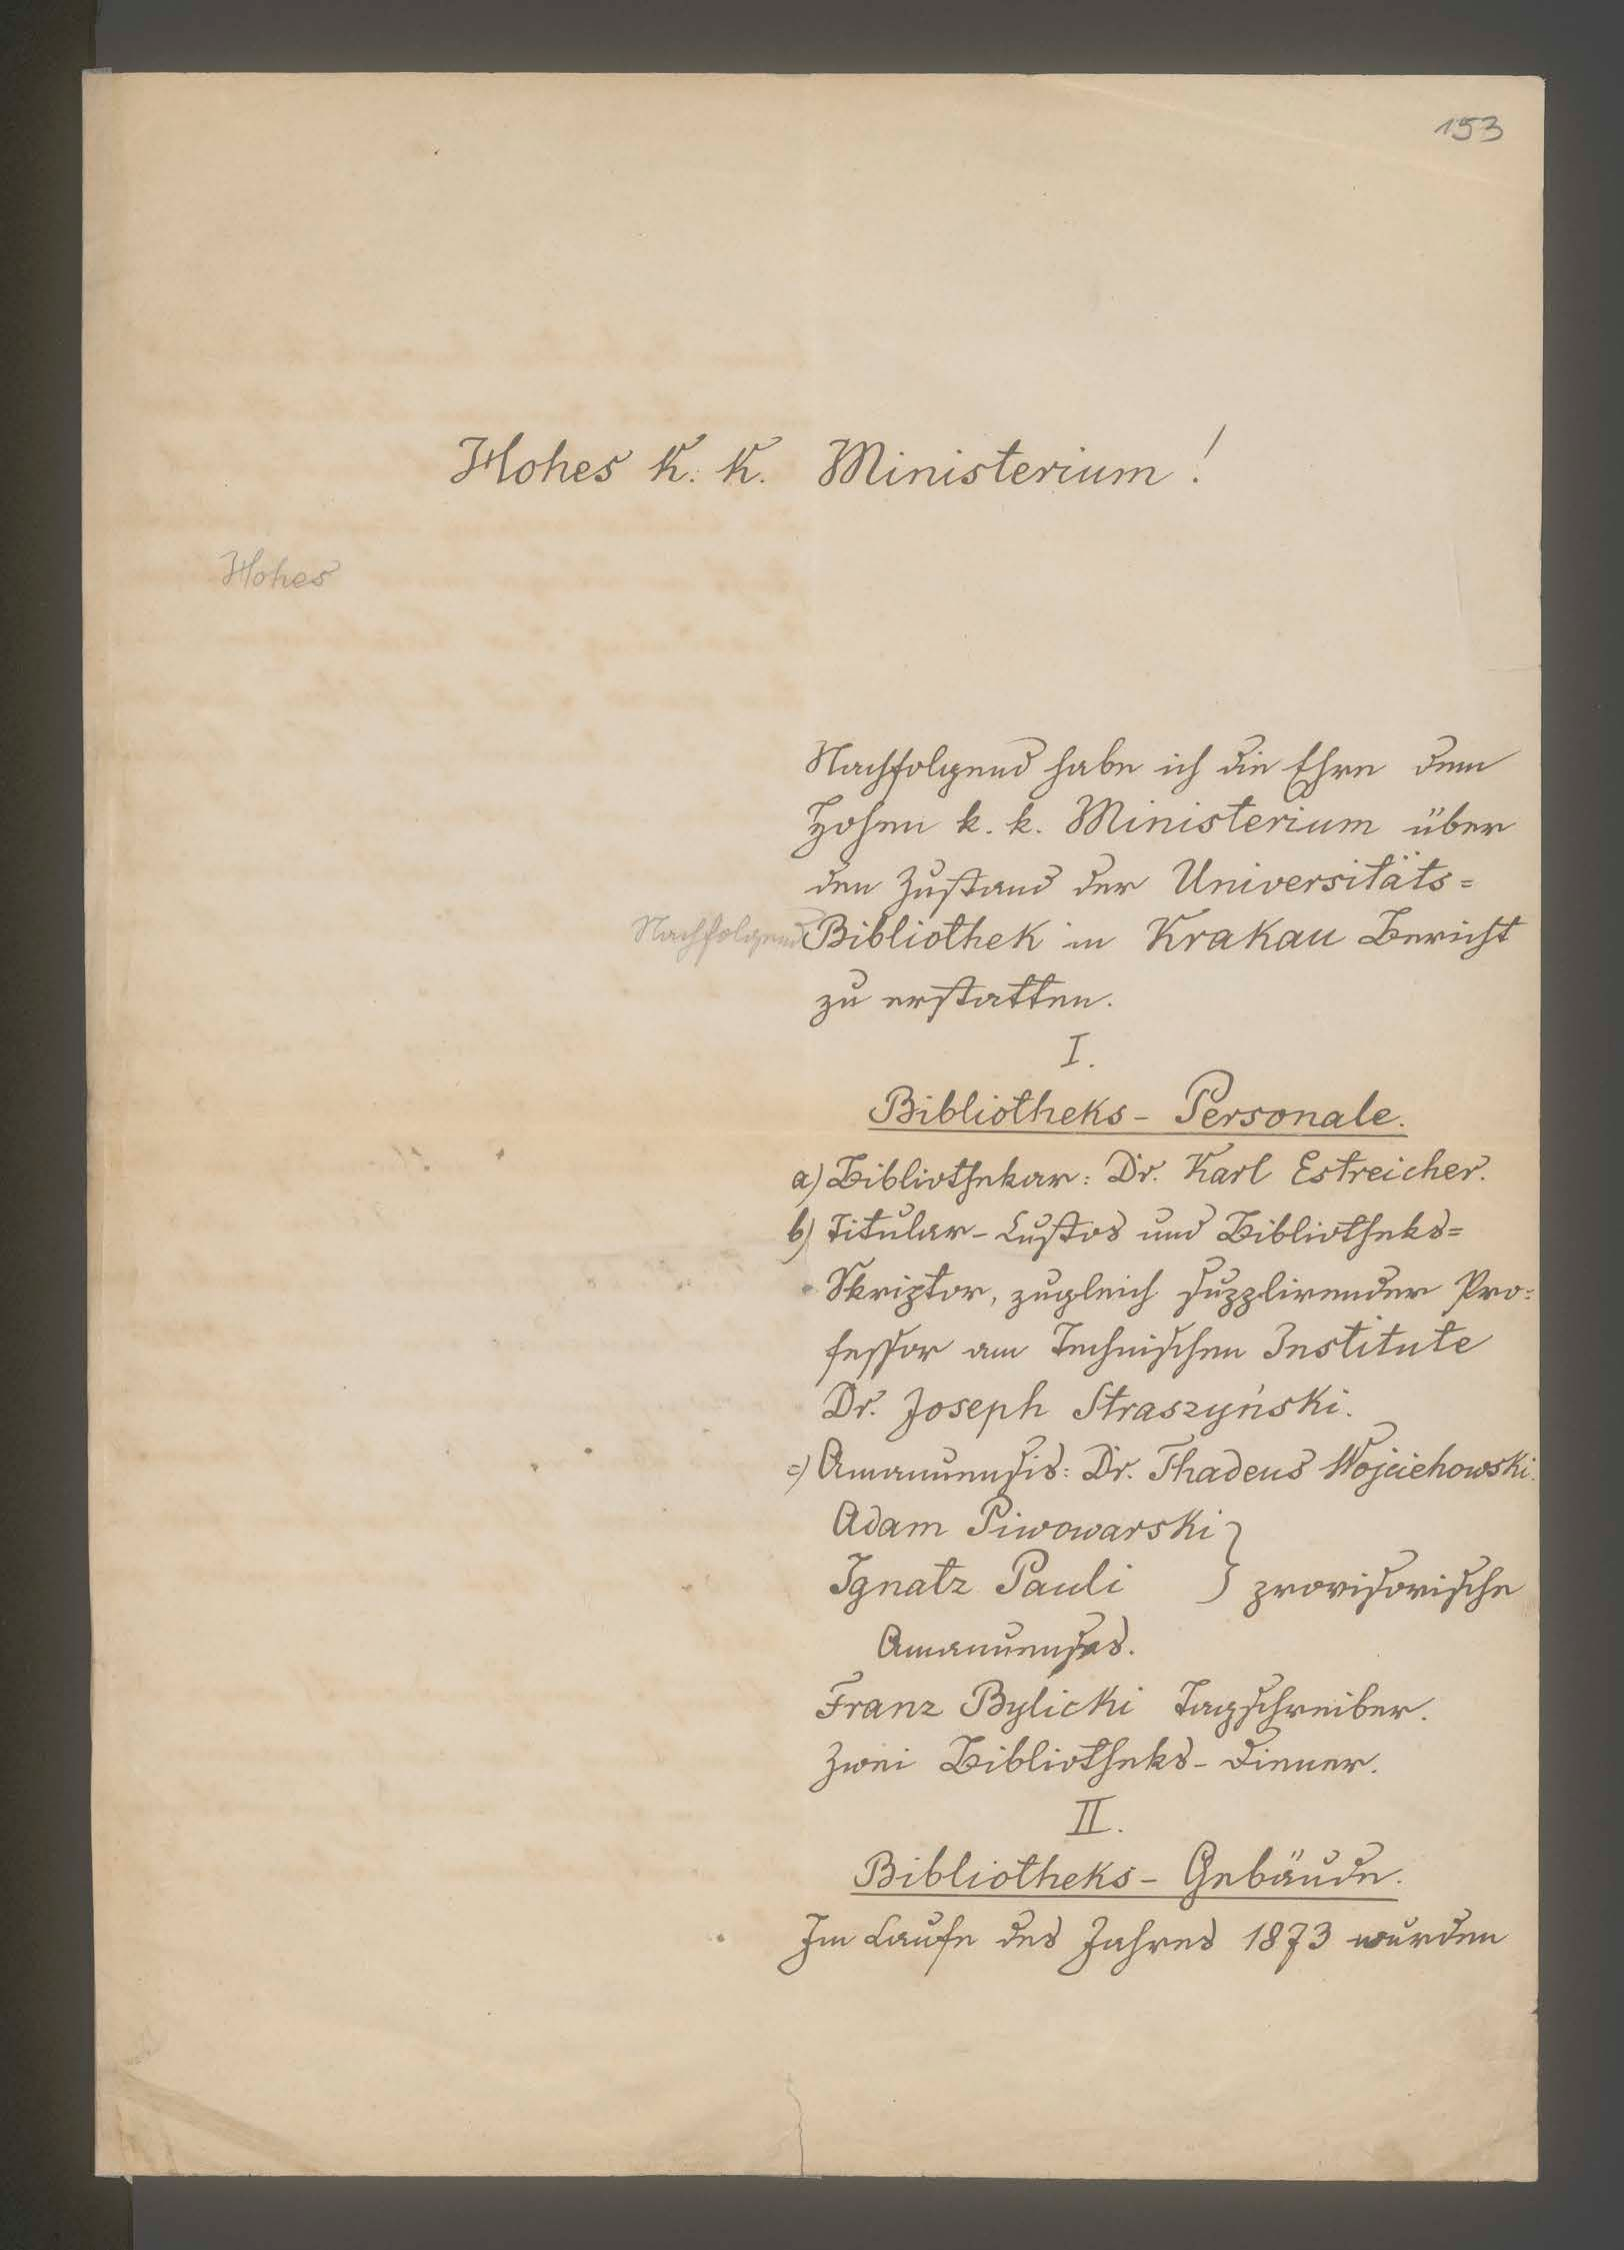 153
Hohes K. K. Ministerium!
Hohes
Nachfolgend habe ich die Ehre dem
Hohen k. k. Ministerium über
den Zustand der Universitäts=
Nachfolgend
Bibliothek in Krakau Bericht
zu erstatten.
I.
Bibliotheks- Personale.
a) Bibliothekar: Dr. Karl Estreicher.
b) Titular-Custos und Bibliotheks=
Skriptor, zugleich supplirender Pro=
fessor am Technischen Institute
Dr. Joseph Straszyński.
c) Amanuensis: Dr. Thadeus Wojciehowski.
Adam Piwowarski
Ignatz Pauli } provisorische
Amanuenses.
Franz Bylicki Tagschreiber.
Zwei Bibliotheks- Diener.
II.
Bibliotheks- Gebäude.
Im Laufe des Jahres 1873 wurden